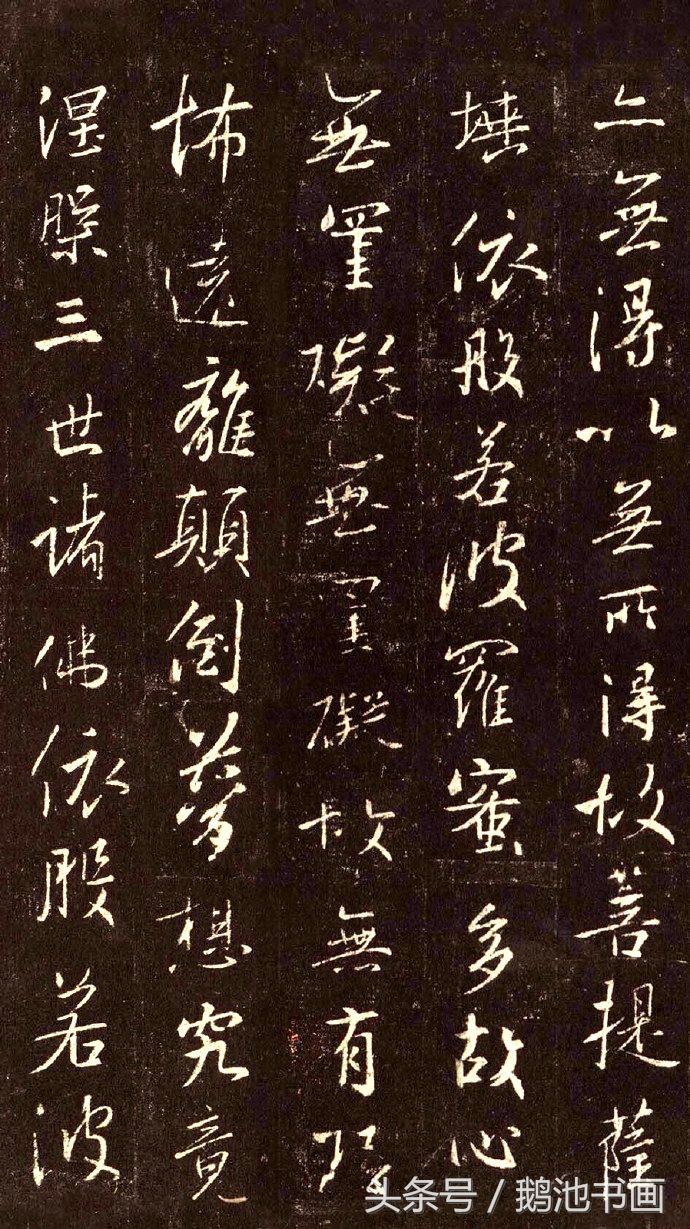 亦無得以無所得故菩提薩
埵依般若波羅蜜多故心
無罣礙無罣礙故無有恐
怖遠離顛倒夢想究竟
涅槃三世諸佛依般若波
头条号 / 鹅池书画